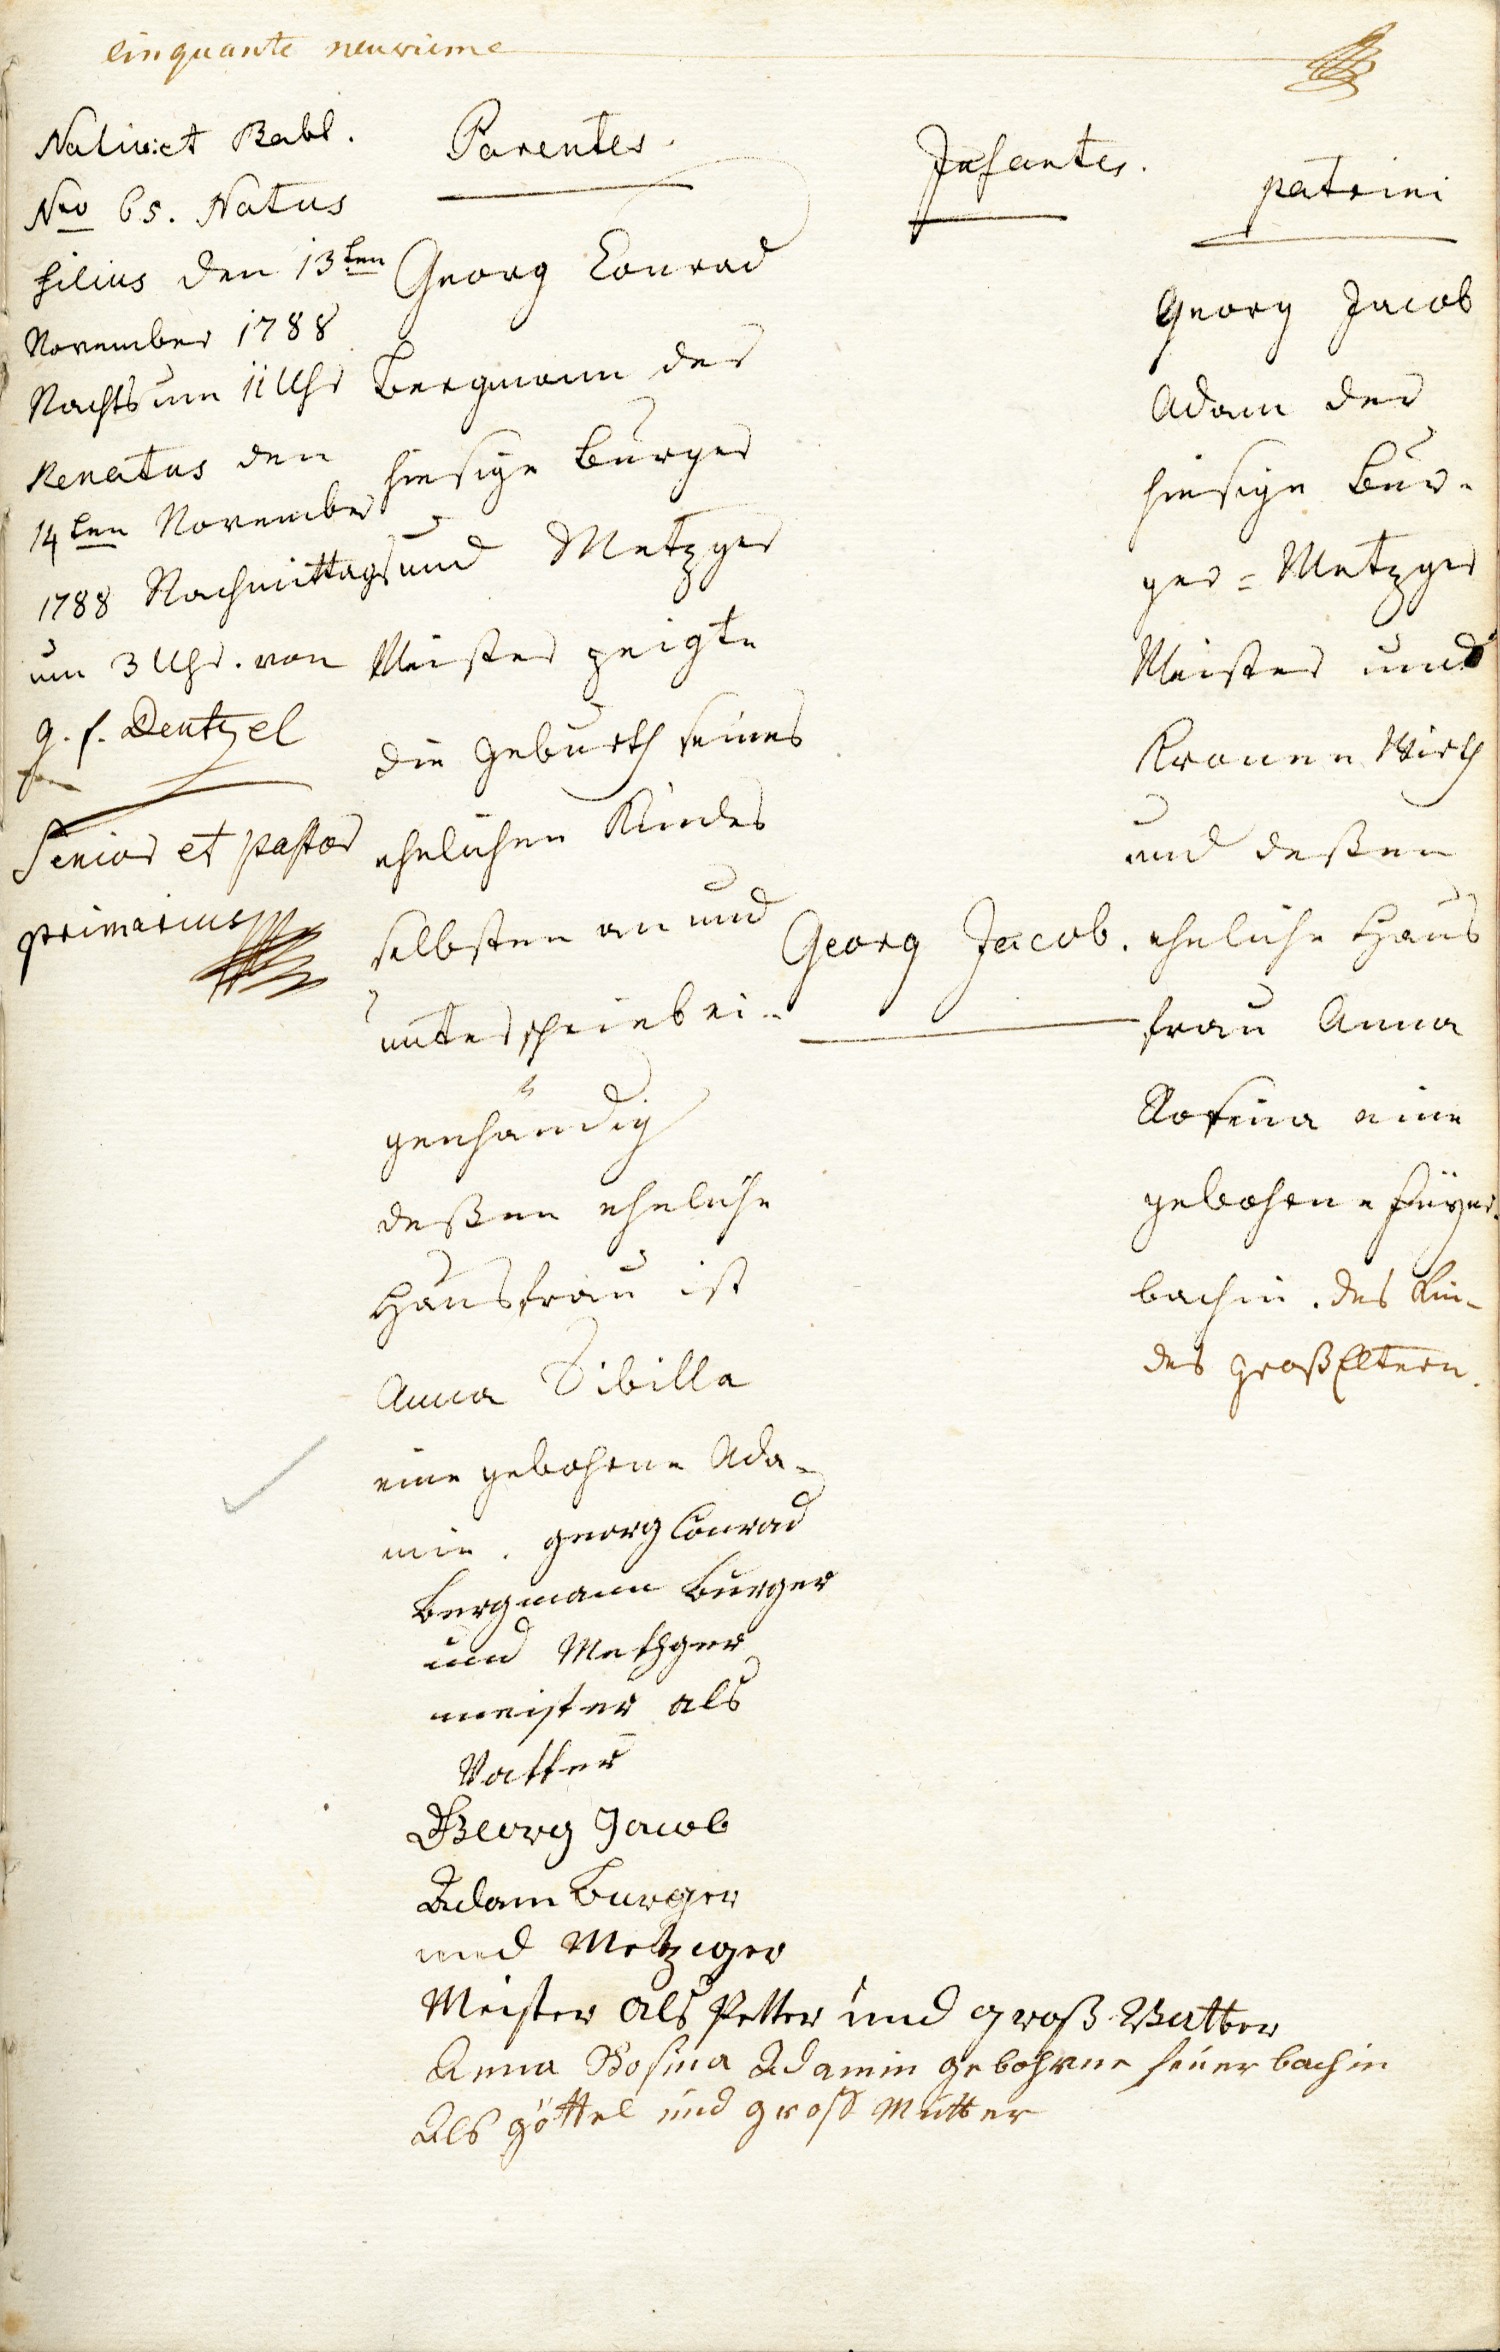 cinquante neuvieme
Nativ: et Babt.
Nro 65. Natus
filius den 13ten
November 1788
Nachts um 11 Uhr
Renatus den
14ten November
1788 Nachmittags
um 3 Uhr. von
g. f. Dentzel
Senior et pastor
primarius
Parentes.
Georg Conrad
Bergmann der
hiesige Burger
und Metzger
Meister zeigte
die Geburth seines
ehelichen Kindes
selbsten an und
unterschrieb ei-
genhändig
deßen eheliche
Hausfrau ist
Anna Sibilla
eine gebohrne Ada-
min. georg Conrad
Bergmann burger
und Methger
meister als
Vatter
Georg Jacob
Adam Burger
und Metzger
Meister als Petter und groß Vatter
Anna Rosina Adamin gebohrne feuerbachin
Als göttel und groß Mutter
Infantes.
Georg Jacob.
patrini
Georg Jacob
Adam der
hiesige Bur-
ger = Metzger
Meister und
Kronen Wirth
und deßen
eheliche Haus
frau Anna
Rosina eine
gebohrne feuer-
bachin. des Kin-
des großEltern.